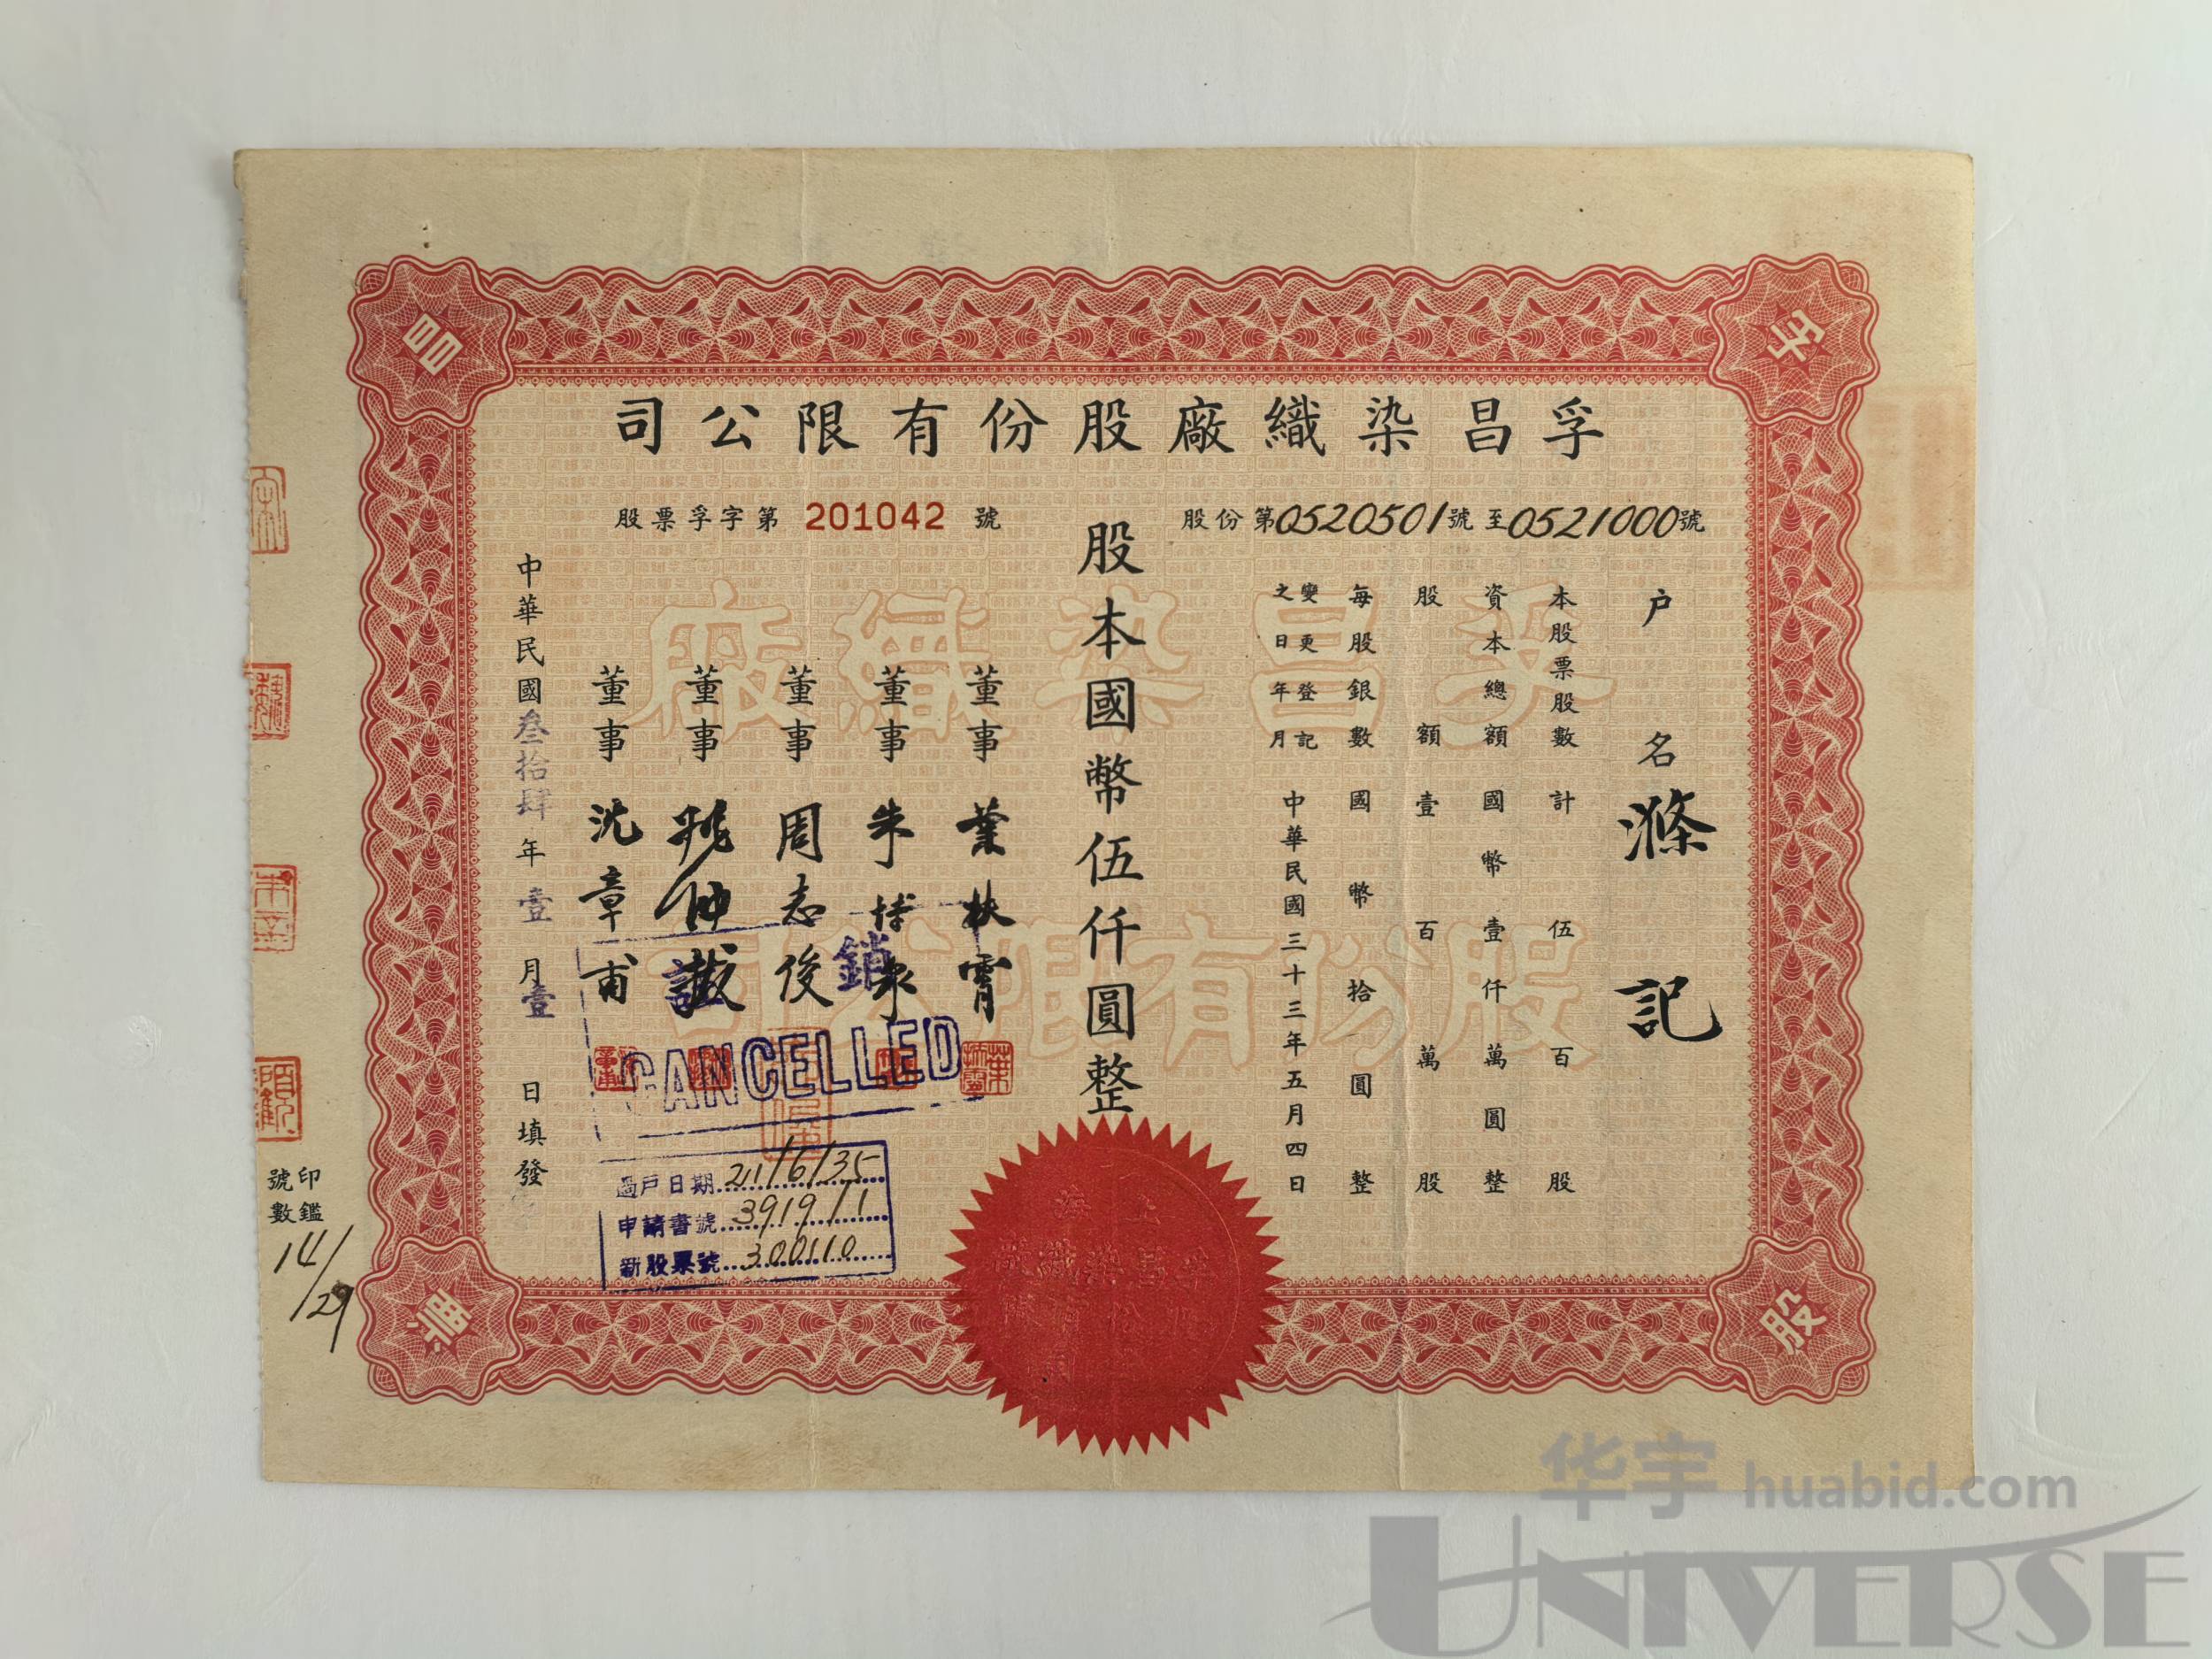 孚昌染織廠股份有限公司
股份第0520501號至0521000號
股票孚字第 201042 號
戶名 滌記
本股票股數計伍百股
資本總額國幣壹仟萬圓整
股額壹百萬股
每股銀數國幣拾圓整
變更登記之日年月 中華民國三十三年五月四日
股本國幣伍仟圓整
董事 葉扶霄
董事 朱博泉
董事 周志俊
董事 仲
董事 沈章甫
中華民國叁拾肆年壹月壹日填發
註銷
CANCELLED
過戶日期 21/6/35
申請書號 3919/1
新股票號 300110
印鑑號數
14/29
孚昌染織廠
股份有限公司
孚
昌
股
票
华宇 huabid.com
UNIVERSE